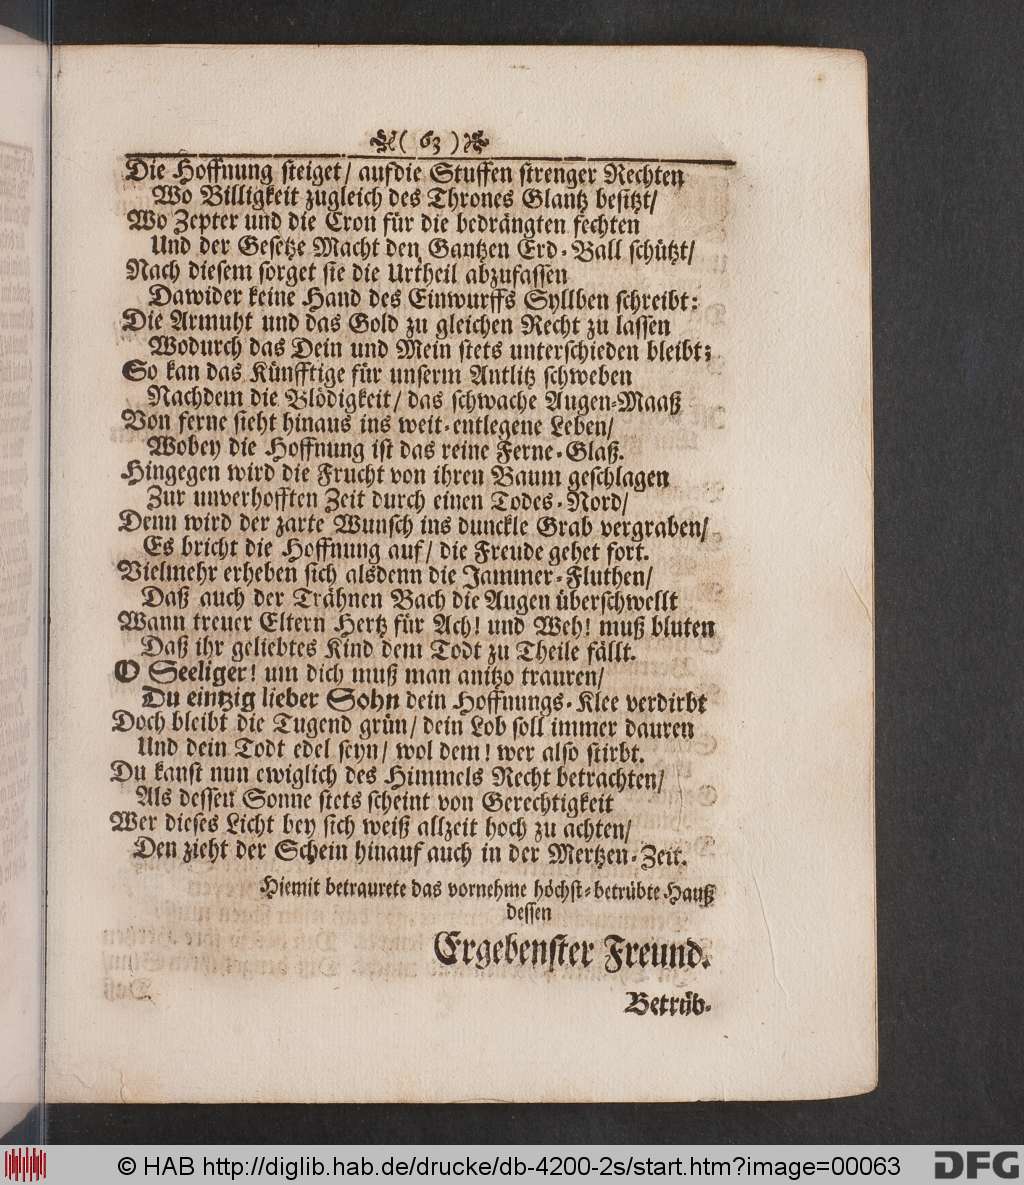 ( 63 )
Die Hoffnung steiget/ aufdie Stuffen strenger Rechten
Wo Billigkeit zugleich des Thrones Glantz besitzt/
Wo Zepter und die Cron für die bedrängten fechten
Und der Gesetze Macht den Gantzen Erd-Ball schützt/
Nach diesem sorget sie die Urtheil abzufassen
Dawider keine Hand des Einwurffs Syllben schreibt:
Die Armuht und das Gold zu gleichen Recht zu lassen
Wodurch das Dein und Mein stets unterschieden bleibt;
So kan das Künfftige für unserm Antlitz schweben
Nachdem die Blödigkeit/ das schwache Augen-Maaß
Von ferne sieht hinaus ins weit-entlegene Leben/
Wobey die Hoffnung ist das reine Ferne-Glaß.
Hingegen wird die Frucht von ihren Baum geschlagen
Zur unverhofften Zeit durch einen Todes-Nord/
Denn wird der zarte Wunsch ins dunckle Grab vergraben/
Es bricht die Hoffnung auf/ die Freude gehet fort.
Vielmehr erheben sich alsdenn die Jammer-Fluthen/
Daß auch der Trähnen Bach die Augen überschwellt
Wann treuer Eltern Hertz für Ach! und Weh! muß bluten
Daß ihr geliebtes Kind dem Todt zu Theile fällt.
O Seeliger! um dich muß man anitzo trauren/
Du eintzig lieber Sohn dein Hoffnungs-Klee verdirbt
Doch bleibt die Tugend grün/ dein Lob soll immer dauren
Und dein Todt edel seyn/ wol dem! wer also stirbt.
Du kanst nun ewiglich des Himmels Recht betrachten/
Als dessen Sonne stets scheint von Gerechtigkeit
Wer dieses Licht bey sich weiß allzeit hoch zu achten/
Den zieht der Schein hinauf auch in der Mertzen-Zeit.
Hiemit betraurete das vornehme höchst-betrübte Hauß
dessen
Ergebenster Freund.
Betrüb-
© HAB http://diglib.hab.de/drucke/db-4200-2s/start.htm?image=00063
DFG